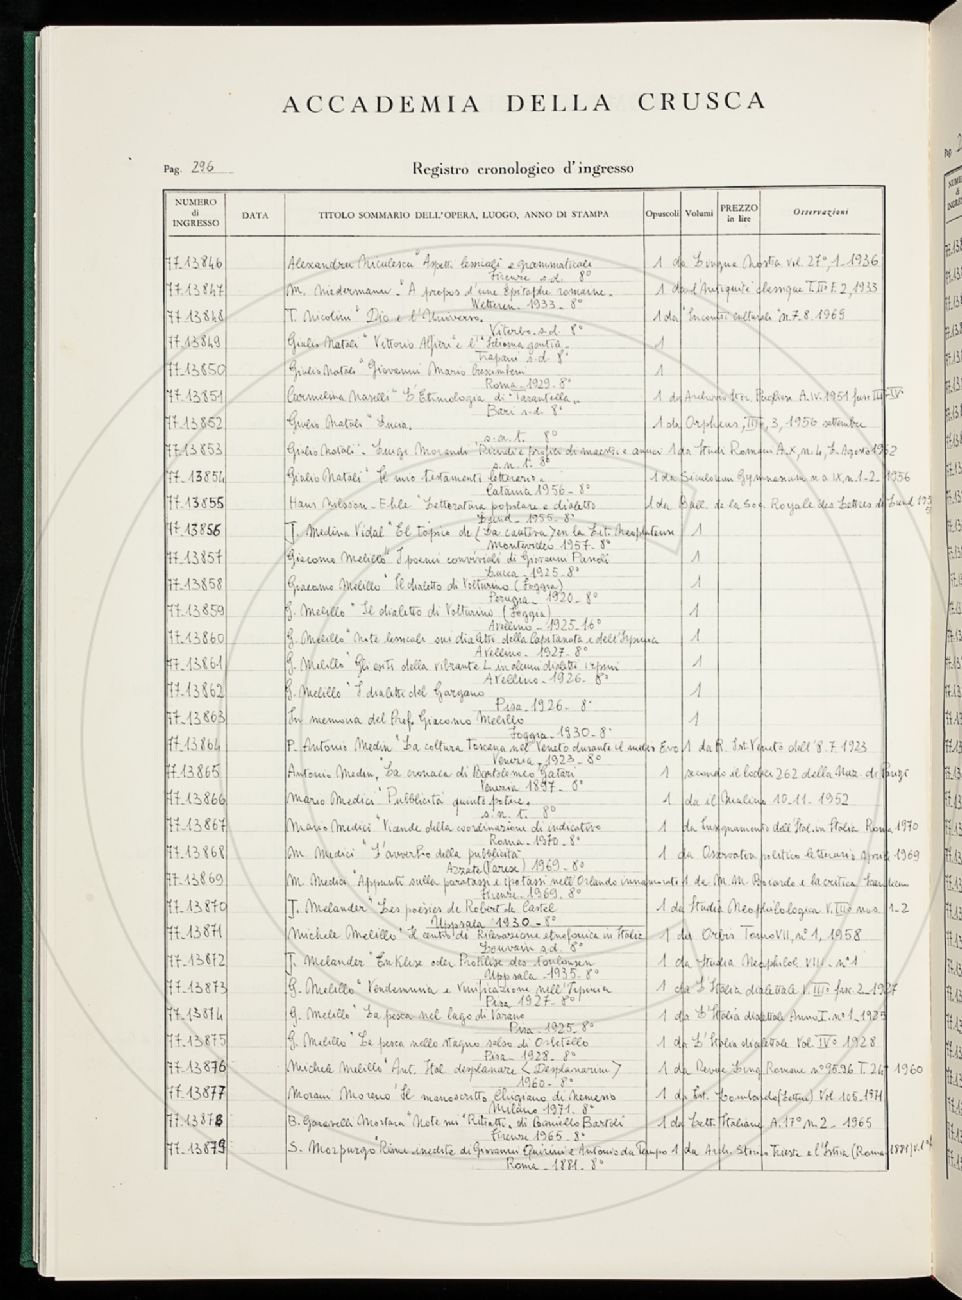 ACCADEMIA DELLA CRUSCA
Pag. 296
Registro cronologico d'ingresso
NUMERO di INGRESSO DATA TITOLO SOMMARIO DELL'OPERA, LUOGO, ANNO DI STAMPA Opuscoli Volumi PREZZO in lire Osservazioni
77-13846 Alexandru Niculescu "Aspetti lessicali e grammaticali 1 da Lingua Nostra vol. 27°, 1-1936
Firenze s.d. 8°
77-13847 M. Niedermann - "A propos d'une épitaphe romaine. 1 da l'Antiquité classique T. II° F. 2, 1933
Wetteren. 1933 - 8°
77-13848 T. Nicolini " Dio e l'Universo. 1 da "Incontri culturali" n. 7-8 1969
Viterbo s.d. 8°
77-13849 Giulio Natali " Vittorio Alfieri e l' 1
Trapani s.d. 8°
77-13850 Giulio Natali " Giovanni Mario Crescimbeni 1
Roma - 1929 - 8°
77-13851 Carmelina Naselli " L'Etimologia di "Tarantella„ 1 da Archivio Stor. Pugliese A. IV. 1951 fasc III-IV
Bari s.d. 8°
77-13852 Giulio Natali " 1 da Orpheus, III°, 3, 1956 settembre
s.n.t. 8°
77-13853 Giulio Natali - Luigi Morandi "Ricordi e profili di maestri e amici 1 da Studi Romani A. X, n. 4, L. Agosto 1962
s.n.t. 8°
77-13854 Giulio Natali " Il mio testamento letterario - 1 da Siculorum Gymnasium n.s. a IX, n. 1-2 1956
Catania 1956 - 8°
77-13855 Hans Nilsson-Ehle "Letteratura popolare e dialetto 1 da Bull. de la Soc. Royale des Lettres de Lund
Lund - 1955 - 8°
77-13856 J. Medina Vidal "El tópico de (La cautiva) en la Lit. 1
Montevideo 1957 - 8°
77-13857 Giacomo Melillo "I poemi conviviali di Giovanni Pascoli 1
Lucca - 1925 - 8°
77-13858 Giacomo Melillo " Il dialetto di Volturino (Foggia) 1
Perugia - 1920 - 8°
77-13859 G. Melillo " Il dialetto di Volturino (Foggia) 1
Avellino - 1925 - 16°
77-13860 G. Melillo " Note lessicali sui dialetti della Capitanata e dell'Irpinia 1
Avellino - 1927 - 8°
77-13861 G. Melillo " Gli esiti della vibrante L in alcuni dialetti irpini 1
Avellino - 1926 - 8°
77-13862 G. Melillo " I dialetti del Gargano 1
Pisa - 1926 - 8°
77-13863 In memoria del Prof. Giacomo Melillo 1
Foggia - 1930 - 8°
77-13864 P. Antonio Medin "La coltura toscana nel Veneto durante il medio Evo 1 da R. Ist. Veneto dell'8. 7. 1923
Venezia - 1923 - 8°
77-13865 Antonio Medin, "La cronaca di Bartolomeo Gatari 1 secondo il codice 262 della Naz. di Parigi
Venezia 1897 - 8°
77-13866 Mario Medici "Pubblicità quinto potere. 1 da il Mulino 10-11 - 1952
s.n.t. 8°
77-13867 Mario Medici " Vicende della coordinazione di indicativo 1 da Insegnamento dell'Ital. in Italia Roma 1970
Roma - 1970 - 8°
77-13868 M. Medici " L'avverbio della pubblicità 1 da Osservatore politico letterario Aprile 1969
Azzate (Varese) 1969 - 8°
77-13869 M. Medici " Appunti sulla paratassi e ipotassi nell'Orlando innamorato 1 da M. M. Boiardo e la critica
Firenze - 1969. 8°
77-13870 J. Melander " Les poésies de Robert de Castel 1 da Studia Neophilologica V. III° nos. 1-2
Uppsala 1930 - 8°
77-13871 Michele Melillo " Il centro di Rilevazione etnofonica in Italia 1 da Orbis Tomo VII, n° 1, 1958
Louvain s.d. - 8°
77-13872 J. Melander " Enklise oder Proklise des 1 da Studia Neophilol. VIII - n° 1
Uppsala - 1935 - 8°
77-13873 G. Melillo " Vendemmia e vinificazione nell'Irpinia 1 da L'Italia dialettale V. III° fasc. 2 - 1927
Pisa 1927 - 8°
77-13874 G. Melillo " La pesca nel lago di Varano 1 da L'Italia dialettale Anno I. n° 1 - 1925
Pisa - 1925 - 8°
77-13875 G. Melillo " La pesca nello stagno salso di Orbetello 1 da L'Italia dialettale Vol. IV° 1928
Pisa - 1928 - 8°
77-13876 Michele Melillo " Ant. Ital. desplanare < Desplanarin > 1 da Revue Ling. Romane n° 95-96 T. 24° 1960
1960 - 8°
77-13877 Morani Moreno " Il manoscritto Chigiano di Nemesio 1 da Ist. Lombardo (Lettere) Vol. 105 - 1971
Milano - 1971 - 8°
77-13878 B. Garavelli Mortara "Note sui "Ritratti„ di Daniello Bartoli 1 da Lett. Italiane A. 17° n. 2 - 1965
Firenze 1965 - 8°
77-13879 S. Morpurgo "Rime inedite di Giovanni Quirini e Antonio da Tempo 1 da Arch. Storico Trieste e l'Istria (Roma 1881)
Roma - 1881 - 8°